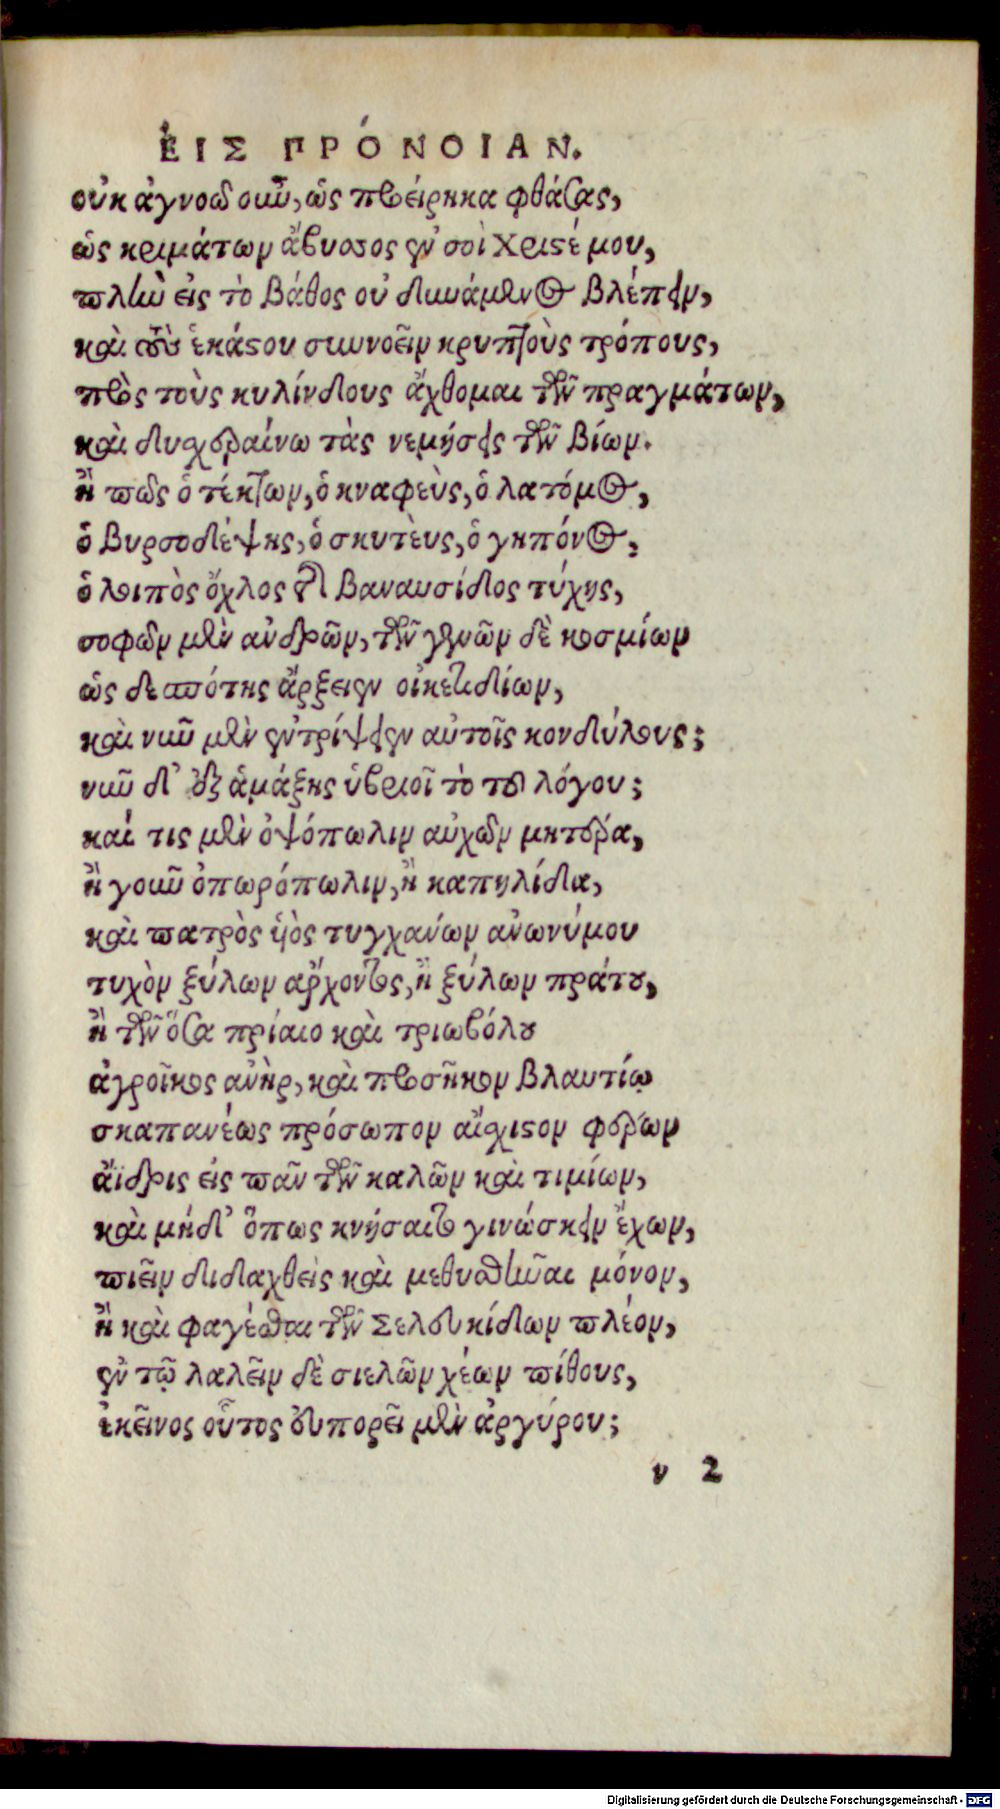 ἘΙΣ ΠΡΌΝΟΙΑΝ.
οὐκ ἀγνοῶ οὖν, ὡς προείρηκα φθάσας,
ὡς κριμάτων ἄβυσσος ἐν σοὶ Χριστέ μου,
πλὴν εἰς τὸ βάθος οὐ δυνάμενος βλέπειν,
καὶ τοὺς ἑκάστου συννοεῖν κρυπτοὺς τρόπους,
πρὸς τοὺς κυλίνδους ἄχθομαι τῶν πραγμάτων,
καὶ δυσχεραίνω τὰς νεμήσεις τῶν βίων.
ἢ πῶς ὁ τέκτων, ὁ κναφεὺς, ὁ λατόμος,
ὁ βυρσοδέψης, ὁ σκυτεὺς, ὁ γηπόνος,
ὁ λοιπὸς ὄχλος ἐκ βαναυσίδος τύχης,
σοφῶν μὲν ἀνδρῶν, τῶν γενῶν δὲ κοσμίων
ὡς δεσπότης ἄρξειεν οἰκεταδίων,
καὶ νῦν μὲν ἐντρίψειεν αὐτοῖς κονδύλους;
νῦν δ' ἐξ ἁμάξης ὑβριοῖ τὸ τοῦ λόγου;
καί τις μὲν ὀψόπωλιν αὐχῶν μητέρα,
ἢ γοῦν ὀπωρόπωλιν, ἢ καπηλίδα,
καὶ πατρὸς υἱὸς τυγχανίων ἀνωνύμου
τυχὸν ξύλων ἄρχοντος, ἢ ξύλων πράτου,
ἢ τῶν ὅσα πρίαιο καὶ τριωβόλου
ἀγροῖκος ἀνὴρ, καὶ προσῆκον βλαυτίῳ
σκαπανέως πρόσωπον αἴσχιστον φέρων
ἄϊδρις εἰς πᾶν τῶν καλῶν καὶ τιμίων,
καὶ μήδ' ὅπως κνήσαιτο γινώσκειν ἔχων,
πιεῖν διδαχθεὶς καὶ μεθυσθῆναι μόνον,
ἢ καὶ φαγέσθαι τῶν Σελευκίδων πλέον,
ἐν τῷ λαλεῖν δὲ σιελῶν χέων πίθους,
ἐκεῖνος οὗτος εὐπορεῖ μὲν ἀργύρου;
ν 2
Digitalisierung gefördert durch die Deutsche Forschungsgemeinschaft - DFG